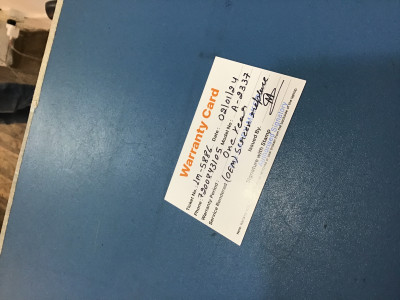 Warranty Card
Ticket No. IM-5886 Date: 02/01/24
Phone: 7200843105 Model No: A-2337
Warranty Period: One Year
Service Rendered: (OEM) Screen replace
Issued By:
Signature with Stamp